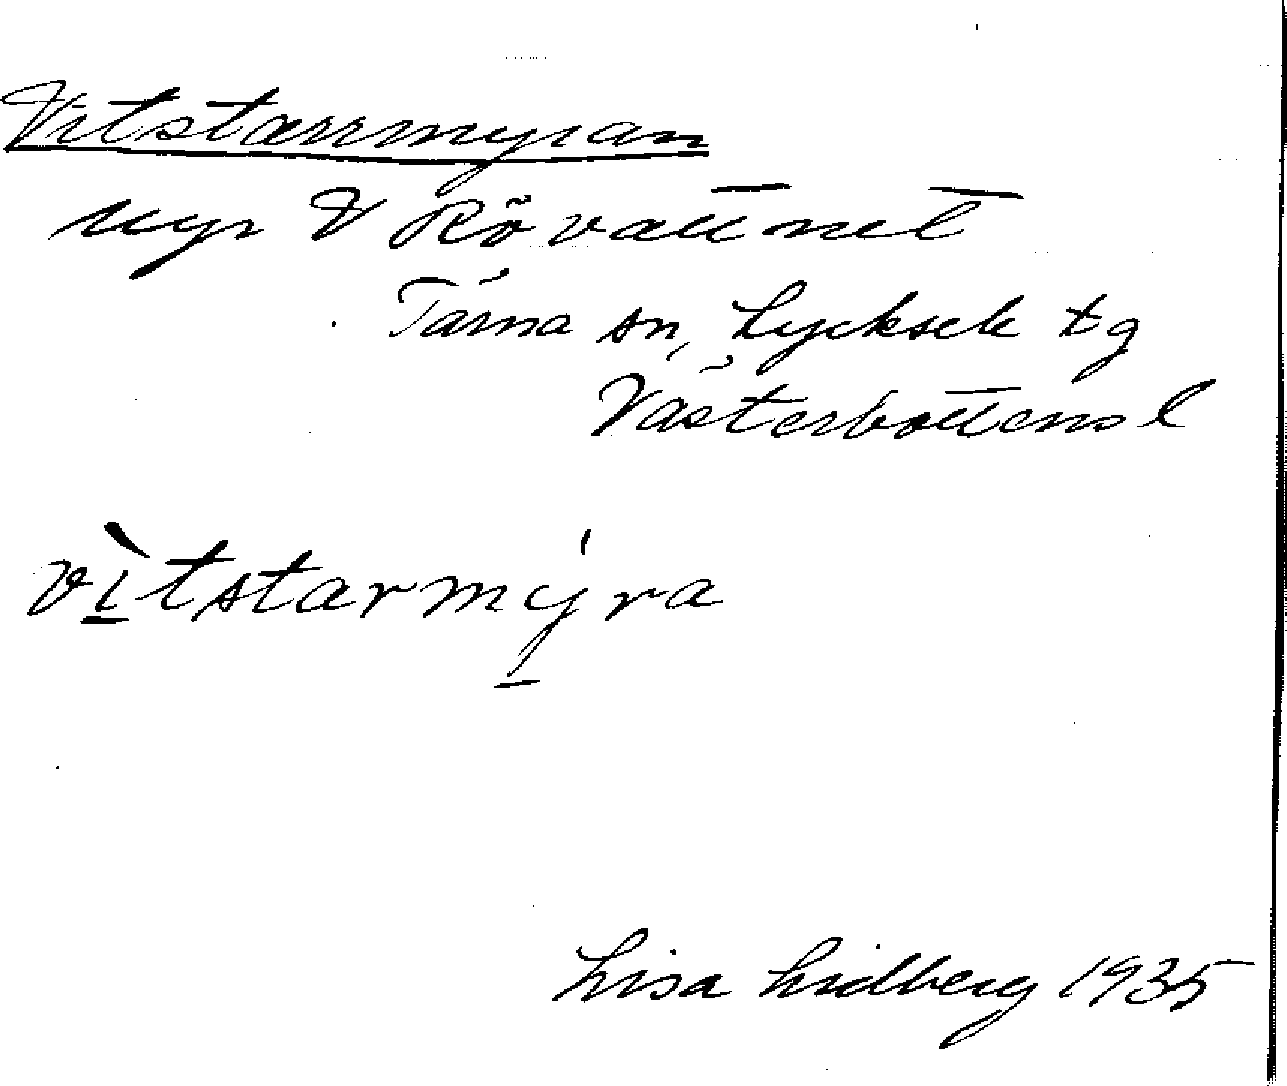 Vitstarrmyran
myr V Rövattnet
Tärna sn, Lycksele tg
Västerbottens l
vì̱tstarmý̱ra
Lisa Lidberg 1935